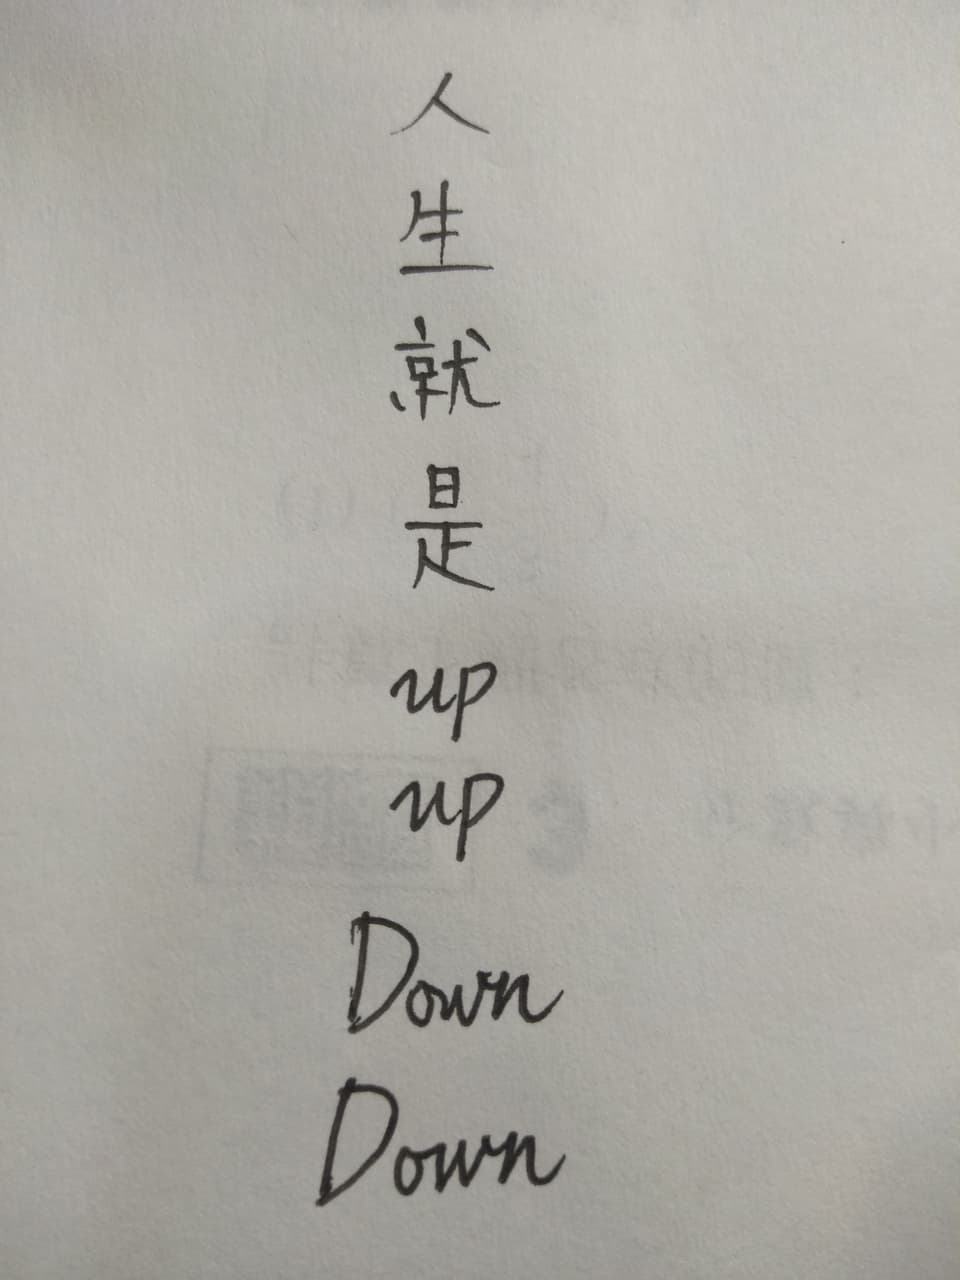 人
生
就
是
up
up
Down
Down